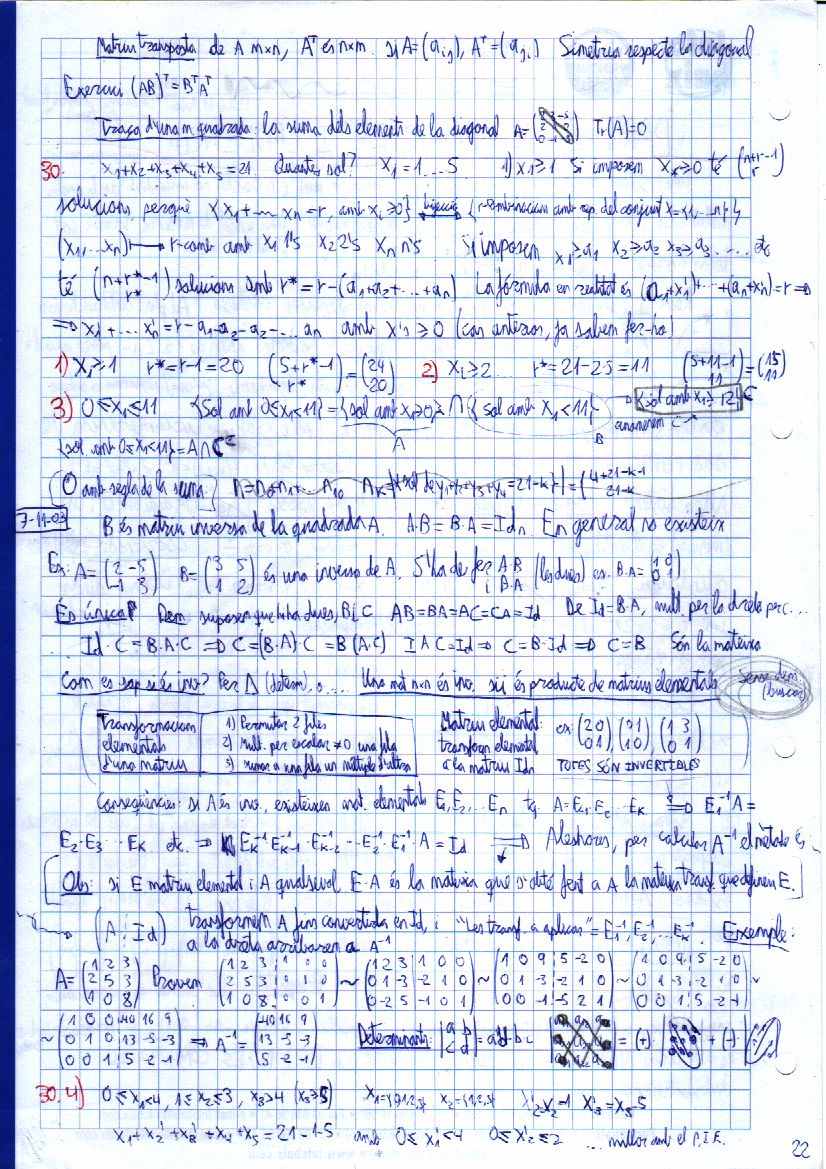 Matriu transposta de A m×n, Aᵀ és n×m. si A=(a_ij), Aᵀ=(a_ji) Simetria respecte la diagonal
Exercici (AB)ᵀ=BᵀAᵀ
Traça d'una m. quadrada: la suma dels elements de la diagonal A= Tr(A)=0
30. x₁+x₂+x₃+x₄+x₅=21 quantes sol? x₁=1...5 1) x₁≥1 Si imposem xₖ≥0 té (n+r-1 / r)
solucions, perquè {x₁+...xₙ=r, amb xᵢ≥0} bijecció {r-combinacions amb rep. del conjunt X={1,...n}}
(x₁,...xₙ) ↦ r-comb amb x₁ 1's x₂ 2's xₙ n's Si imposem x₁≥a₁ x₂≥a₂ x₃≥a₃ .... etc
té (n+r*-1 / r*) solucions amb r*=r-(a₁+a₂+...+aₙ) La fórmula en realitat és (a₁+x'₁)+...+(aₙ+x'ₙ)=r ⇒
⇒ x'₁+...x'ₙ=r-a₁-a₂-a₂-...aₙ amb x'ᵢ≥0 (cas anterior, ja sabem fer-ho)
1) xᵢ≥1 r*=r-1=20 (5+r*-1 / r*)=(24 / 20) 2) xᵢ≥2 r*=21-2·5=11 (5+11-1 / 11)=(15 / 11)
3) 0≤x₁≤11 {Sol amb 0≤x₁<11}={sol amb x₁≥0}∩{sol amb x₁<11} {sol amb x₁≥12}ᶜ
A B anomenem C
{sol. amb 0≤x₁<11}=A∩Cᶜ
O amb regla de la suma n=n₀+n₁+...n₁₀ Aₖ=|{sol de y₁+y₂+y₃+y₄=21-k}|=(4+21-k-1 / 21-k)
7-11-03 B és matriu inversa de la quadrada A. A·B=B·A=Idₙ En general no existeix
Ex: A=(2 -5 / -1 3) B=(3 5 / 1 2) és una inversa de A. S'ha de fer A·B i B·A (les dues) ex. B·A=(1 0 / 0 1)
És única? Dem. suposem que hi ha dues, B i C AB=BA=AC=CA=Id De Id=B·A, mult. per la dreta per C...
Id·C=B·A·C ⇒ C=(B·A)·C=B(A·C) I AC=Id ⇒ C=B·Id ⇒ C=B Són la mateixa
Com es sap si és inv? Per Δ (determ), o .... Una mat n×n és inv. sii és producte de matrius elementals Sense dem (buscar)
Transformacions elementals d'una matriu
1) Permutar 2 files
2) Mult. per escalar ≠0 una fila
3) sumar a una fila un múltiple d'altra
Matriu elemental: transform elemental a la matriu Idₙ
ex: (2 0 / 0 1), (0 1 / 1 0), (1 3 / 0 1) TOTES SÓN INVERTIBLES
Conseqüències: si A és inv., existeixen mat. elementals E₁,E₂,...Eₙ tq A=E₁·E₂...Eₖ ⇒ E₁⁻¹A=
E₂·E₃...Eₖ etc. ⇒ Eₖ⁻¹·Eₖ₋₁⁻¹·Eₖ₋₂⁻¹...E₂⁻¹·E₁⁻¹·A=Id ⇒ Aleshores, per calcular A⁻¹ el mètode és
Obs: si E matriu elemental i A qualsevol E·A és la mateixa que s'obté fent a A la mateixa transf. que defineix E.
(A | Id) transformem A fins convertirla en Id, i "Les transf. a aplicar"=E₁⁻¹,E₂⁻¹,...Eₖ⁻¹. Exemple:
a la dreta arribarem a A⁻¹
A=(1 2 3 / 2 5 3 / 1 0 8) Provem (1 2 3 1 0 0 / 2 5 3 0 1 0 / 1 0 8 0 0 1) ~ (1 2 3 1 0 0 / 0 1 -3 -2 1 0 / 0 -2 5 -1 0 1) ~ (1 0 9 5 -2 0 / 0 1 -3 -2 1 0 / 0 0 -1 -5 2 1) ~ (1 0 9 5 -2 0 / 0 1 -3 -2 1 0 / 0 0 1 5 -2 -1) ~
~ (1 0 0 -40 16 9 / 0 1 0 13 -5 -3 / 0 0 1 5 -2 -1) ⇒ A⁻¹=(-40 16 9 / 13 -5 -3 / 5 -2 -1) Determinants: |a b / c d|=ad-bc = (+) + (-)
30.4) 0≤x₁<4, 1≤x₂≤3, x₃>4 (x₃≥5) x₂={1,2,3} x'₂=x₂-1 x'₃=x₃-5
x₁+x'₂+x'₃+x₄+x₅=21-1-5 amb 0≤x₁<4 0≤x'₂≤2 ... millor amb el P.I.E.
22